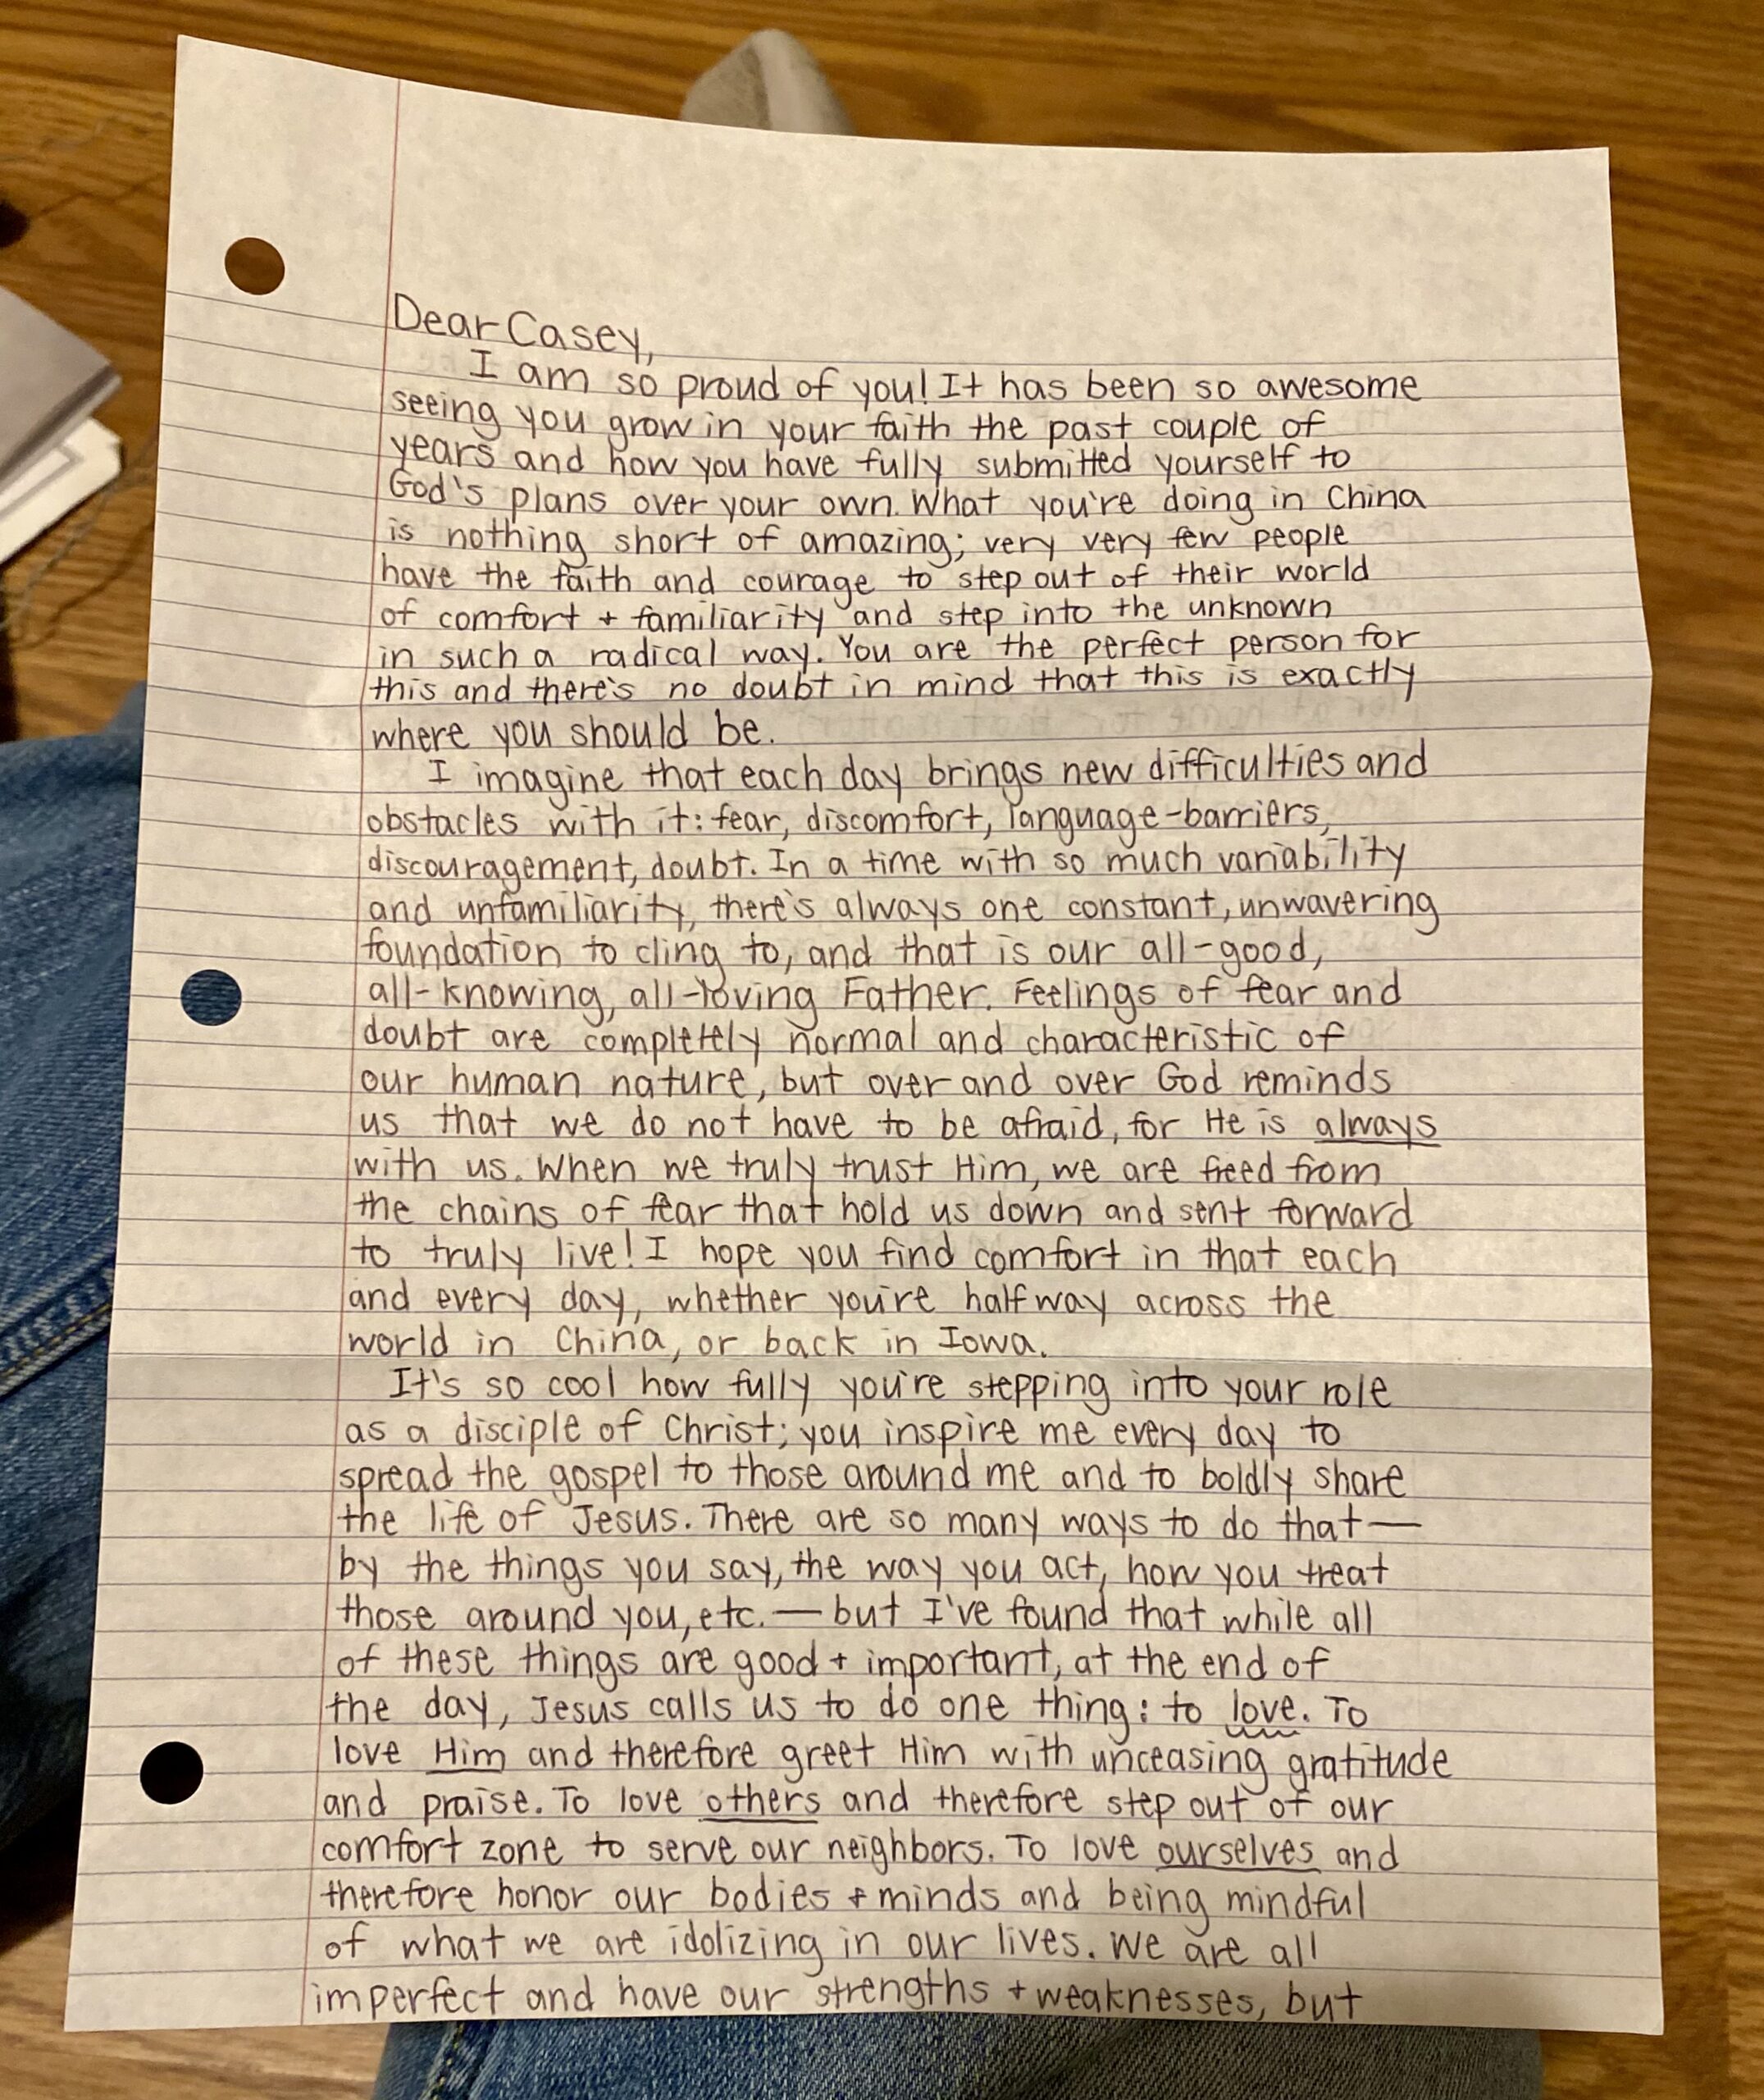 Dear Casey,
I am so proud of you! It has been so awesome
seeing you grow in your faith the past couple of
years and how you have fully submitted yourself to
God's plans over your own. What you're doing in China
is nothing short of amazing; very very few people
have the faith and courage to step out of their world
of comfort + familiarity and step into the unknown
in such a radical way. You are the perfect person for
this and there's no doubt in mind that this is exactly
where you should be.
I imagine that each day brings new difficulties and
obstacles with it: fear, discomfort, language-barriers,
discouragement, doubt. In a time with so much variability
and unfamiliarity, there's always one constant, unwavering
foundation to cling to, and that is our all-good,
all-knowing, all-loving Father. Feelings of fear and
doubt are completely normal and characteristic of
our human nature, but over and over God reminds
us that we do not have to be afraid, for He is always
with us. When we truly trust Him, we are freed from
the chains of fear that hold us down and sent forward
to truly live! I hope you find comfort in that each
and every day, whether you're halfway across the
world in China, or back in Iowa.
It's so cool how fully you're stepping into your role
as a disciple of Christ; you inspire me every day to
spread the gospel to those around me and to boldly share
the life of Jesus. There are so many ways to do that—
by the things you say, the way you act, how you treat
those around you, etc. — but I've found that while all
of these things are good + important, at the end of
the day, Jesus calls us to do one thing: to love. To
love Him and therefore greet Him with unceasing gratitude
and praise. To love others and therefore step out of our
comfort zone to serve our neighbors. To love ourselves and
therefore honor our bodies + minds and being mindful
of what we are idolizing in our lives. We are all
imperfect and have our strengths + weaknesses, but